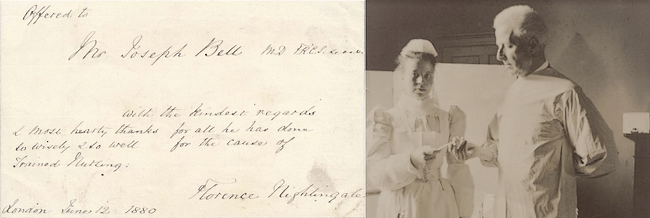 Offered to
Mr Joseph Bell M.D. F.R.C.S.
With the kindest regards
& most hearty thanks for all he has done
so wisely & so well for the causes of
Trained Nursing:
Florence Nightingale
London June 12 1880